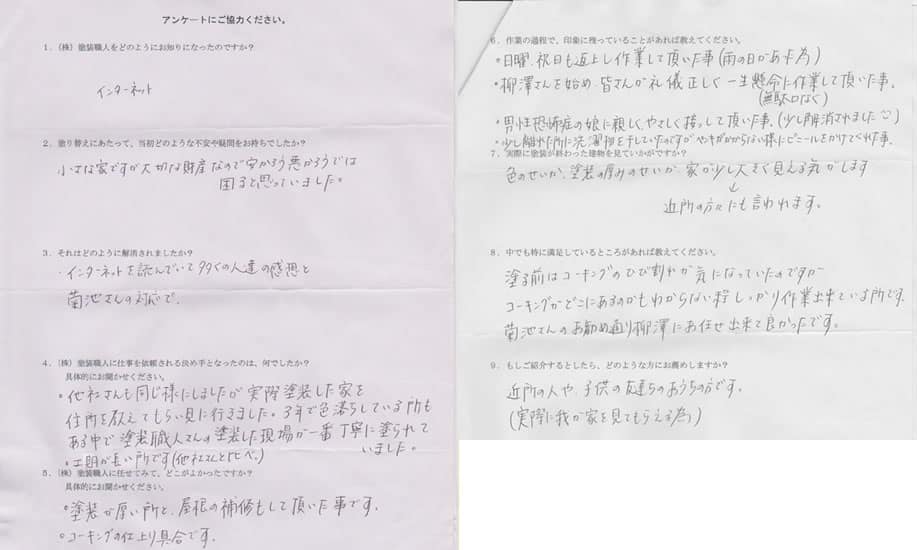 アンケートにご協力ください。
1．(株) 塗装職人をどのようにお知りになったのですか？
インターネット
2．塗り替えにあたって、当初どのような不安や疑問をお持ちでしたか？
小さな家ですが大切な財産なので安かろう悪かろうでは
困ると思っていました。
3．それはどのように解消されましたか？
・インターネットを読んでいて多くの人達の感想と
菊池さんの対応で。
4．(株) 塗装職人に仕事を依頼される決め手となったのは、何でしたか？
具体的にお聞かせください。
・他社さんも同じ様にしましたが実際塗装した家を
住所を教えてもらい見に行きました。3年で色落ちしている所も
ある中で塗装職人さんの塗装した現場が一番丁寧に塗られて
いました。
・工期が長い所です(他社さんと比べ。)
5．(株) 塗装職人に任せてみて、どこがよかったですか？
具体的にお聞かせください。
・塗装が厚い所と、屋根の補修もして頂いた事です。
・コーキングの仕上り具合です。
6．作業の過程で、印象に残っていることがあれば教えてください。
・日曜、祝日も返上し作業して頂いた事(雨の日があった為)
・柳澤さんを始め、皆さんが礼儀正しく一生懸命に作業して頂いた事。
(無駄口なく)
・男性恐怖症の娘に親しく、やさしく接して頂いた事。(少し解消されました)
・少し離れた所に洗濯物を干していたのですがペンキがかからない様にビニールをかけてくれた事。
7．実際に塗装が終わった建物を見ていかがですか？
色のせいか、塗装の厚みのせいか、家が少し大きく見える気がします
↓
近所の方々にも言われます。
8．中でも特に満足しているところがあれば教えてください。
塗る前はコーキングのひび割れが気になっていたのですが
コーキングがどこにあるのかもわからない程しっかり作業出来ている所です。
菊池さんのお勧め通り柳澤にお任せ出来て良かったです。
9．もしご紹介するとしたら、どのような方にお薦めしますか？
近所の人や、子供の友達ちのおうちの方です。
(実際に我が家を見てもらえる為)